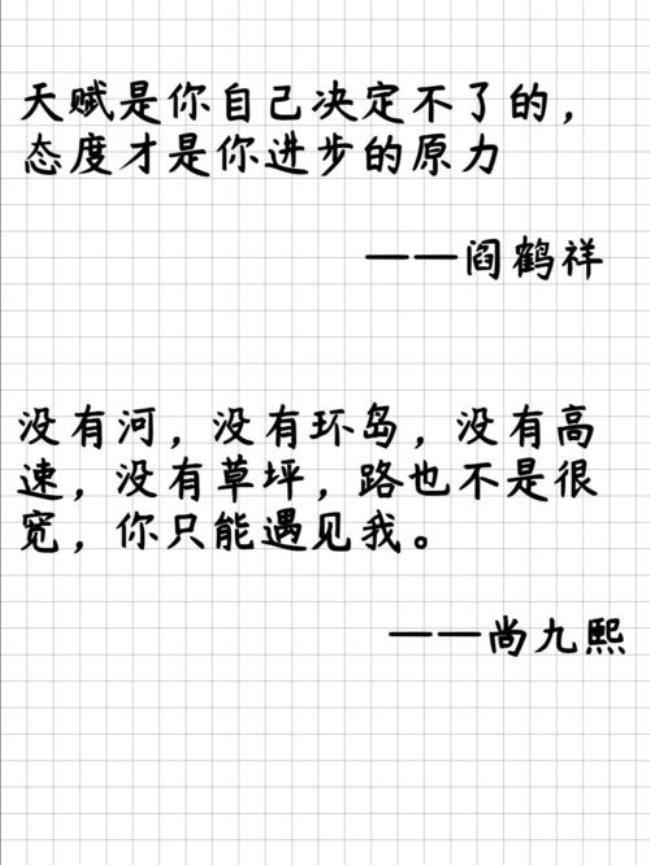 天赋是你自己决定不了的，
态度才是你进步的原力
——阎鹤祥
没有河，没有环岛，没有高
速，没有草坪，路也不是很
宽，你只能遇见我。
——尚九熙